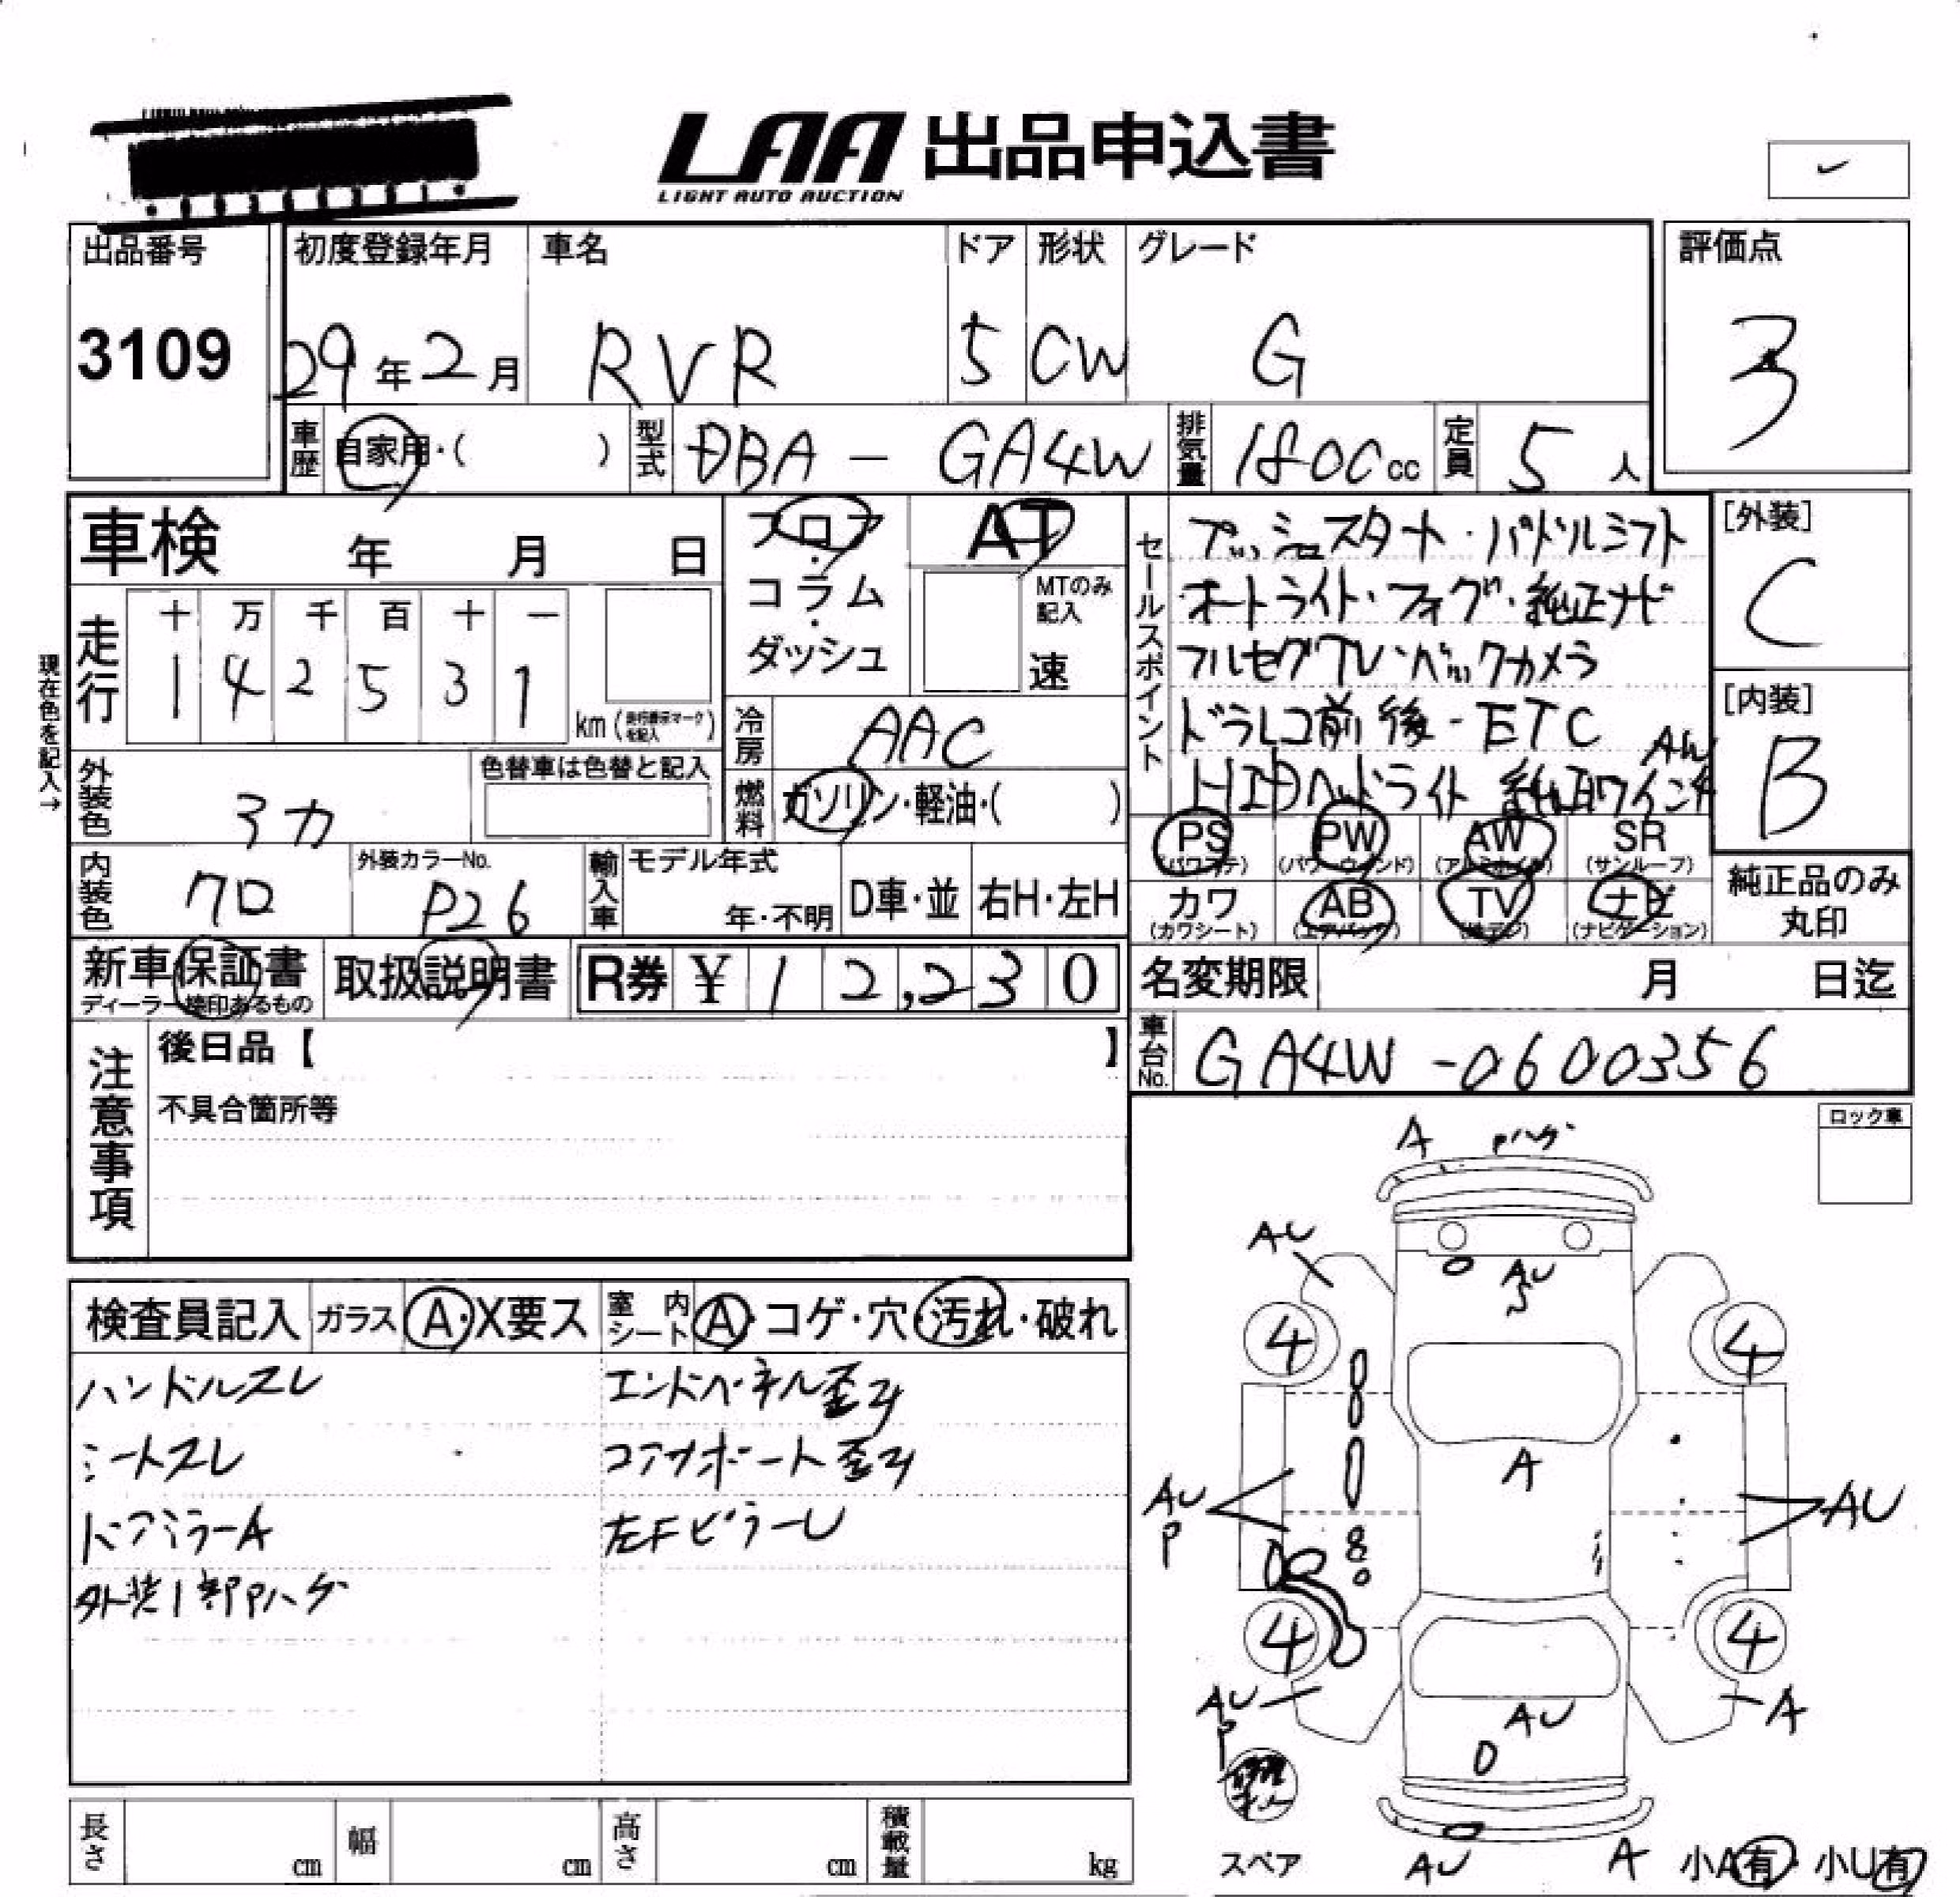 LAA 出品申込書
LIGHT AUTO AUCTION
出品番号 初度登録年月 車名 ドア 形状 グレード 評価点
3109 29年2月 RVR 5 CW G 3
車歴 自家用・( ) 型式 DBA - GA4W 排気量 1800cc 定員 5人
車検 年 月 日 フロア・コラム・ダッシュ AT
MTのみ記入 速
セールスポイント
プッシュスタート・パドルシフト
オートライト・フォグ・純正ナビ
フルセグTV・バックカメラ
ドラレコ前後・ETC
HIDヘッドライト 純正17インチ AW
[外装]
C
[内装]
B
現在色を記入→
走行 十 万 千 百 十 一
1 4 2 5 3 1 km (走行メーター表示マークを記入)
冷房 AAC
外装色 シカ 色替車は色替と記入
燃料 ガソリン・軽油・( )
PS (パワステ) PW (パワーウィンド) AW (アルミホイル) SR (サンルーフ)
カワ (カワシート) AB (エアバッグ) TV (地デジ) ナビ (ナビゲーション)
純正品のみ丸印
内装色 クロ 外装カラーNo. P26 輸入車 モデル年式 年・不明 D車・並 右H・左H
新車保証書 取扱説明書 R券 ¥ 1 2,2 3 0
ディーラー捺印あるもの
名変期限 月 日迄
車台No. GA4W-0600356
注意事項
後日品【 】
不具合箇所等
ロック車
検査員記入 ガラス A・X要ス 室内シート A・コゲ・穴・汚れ・破れ
ハンドルスレ エンドパネル歪み
シートスレ コアサポート歪み
ドアミラーA 左FピラーU
外装1部Pハゲ
A Pハゲ
AU
AU
4 4
A
AU P
AU
4 4
AU P
A
AU
スペア
AU
A
小A有・小U有
長さ cm 幅 cm 高さ cm 積載量 kg